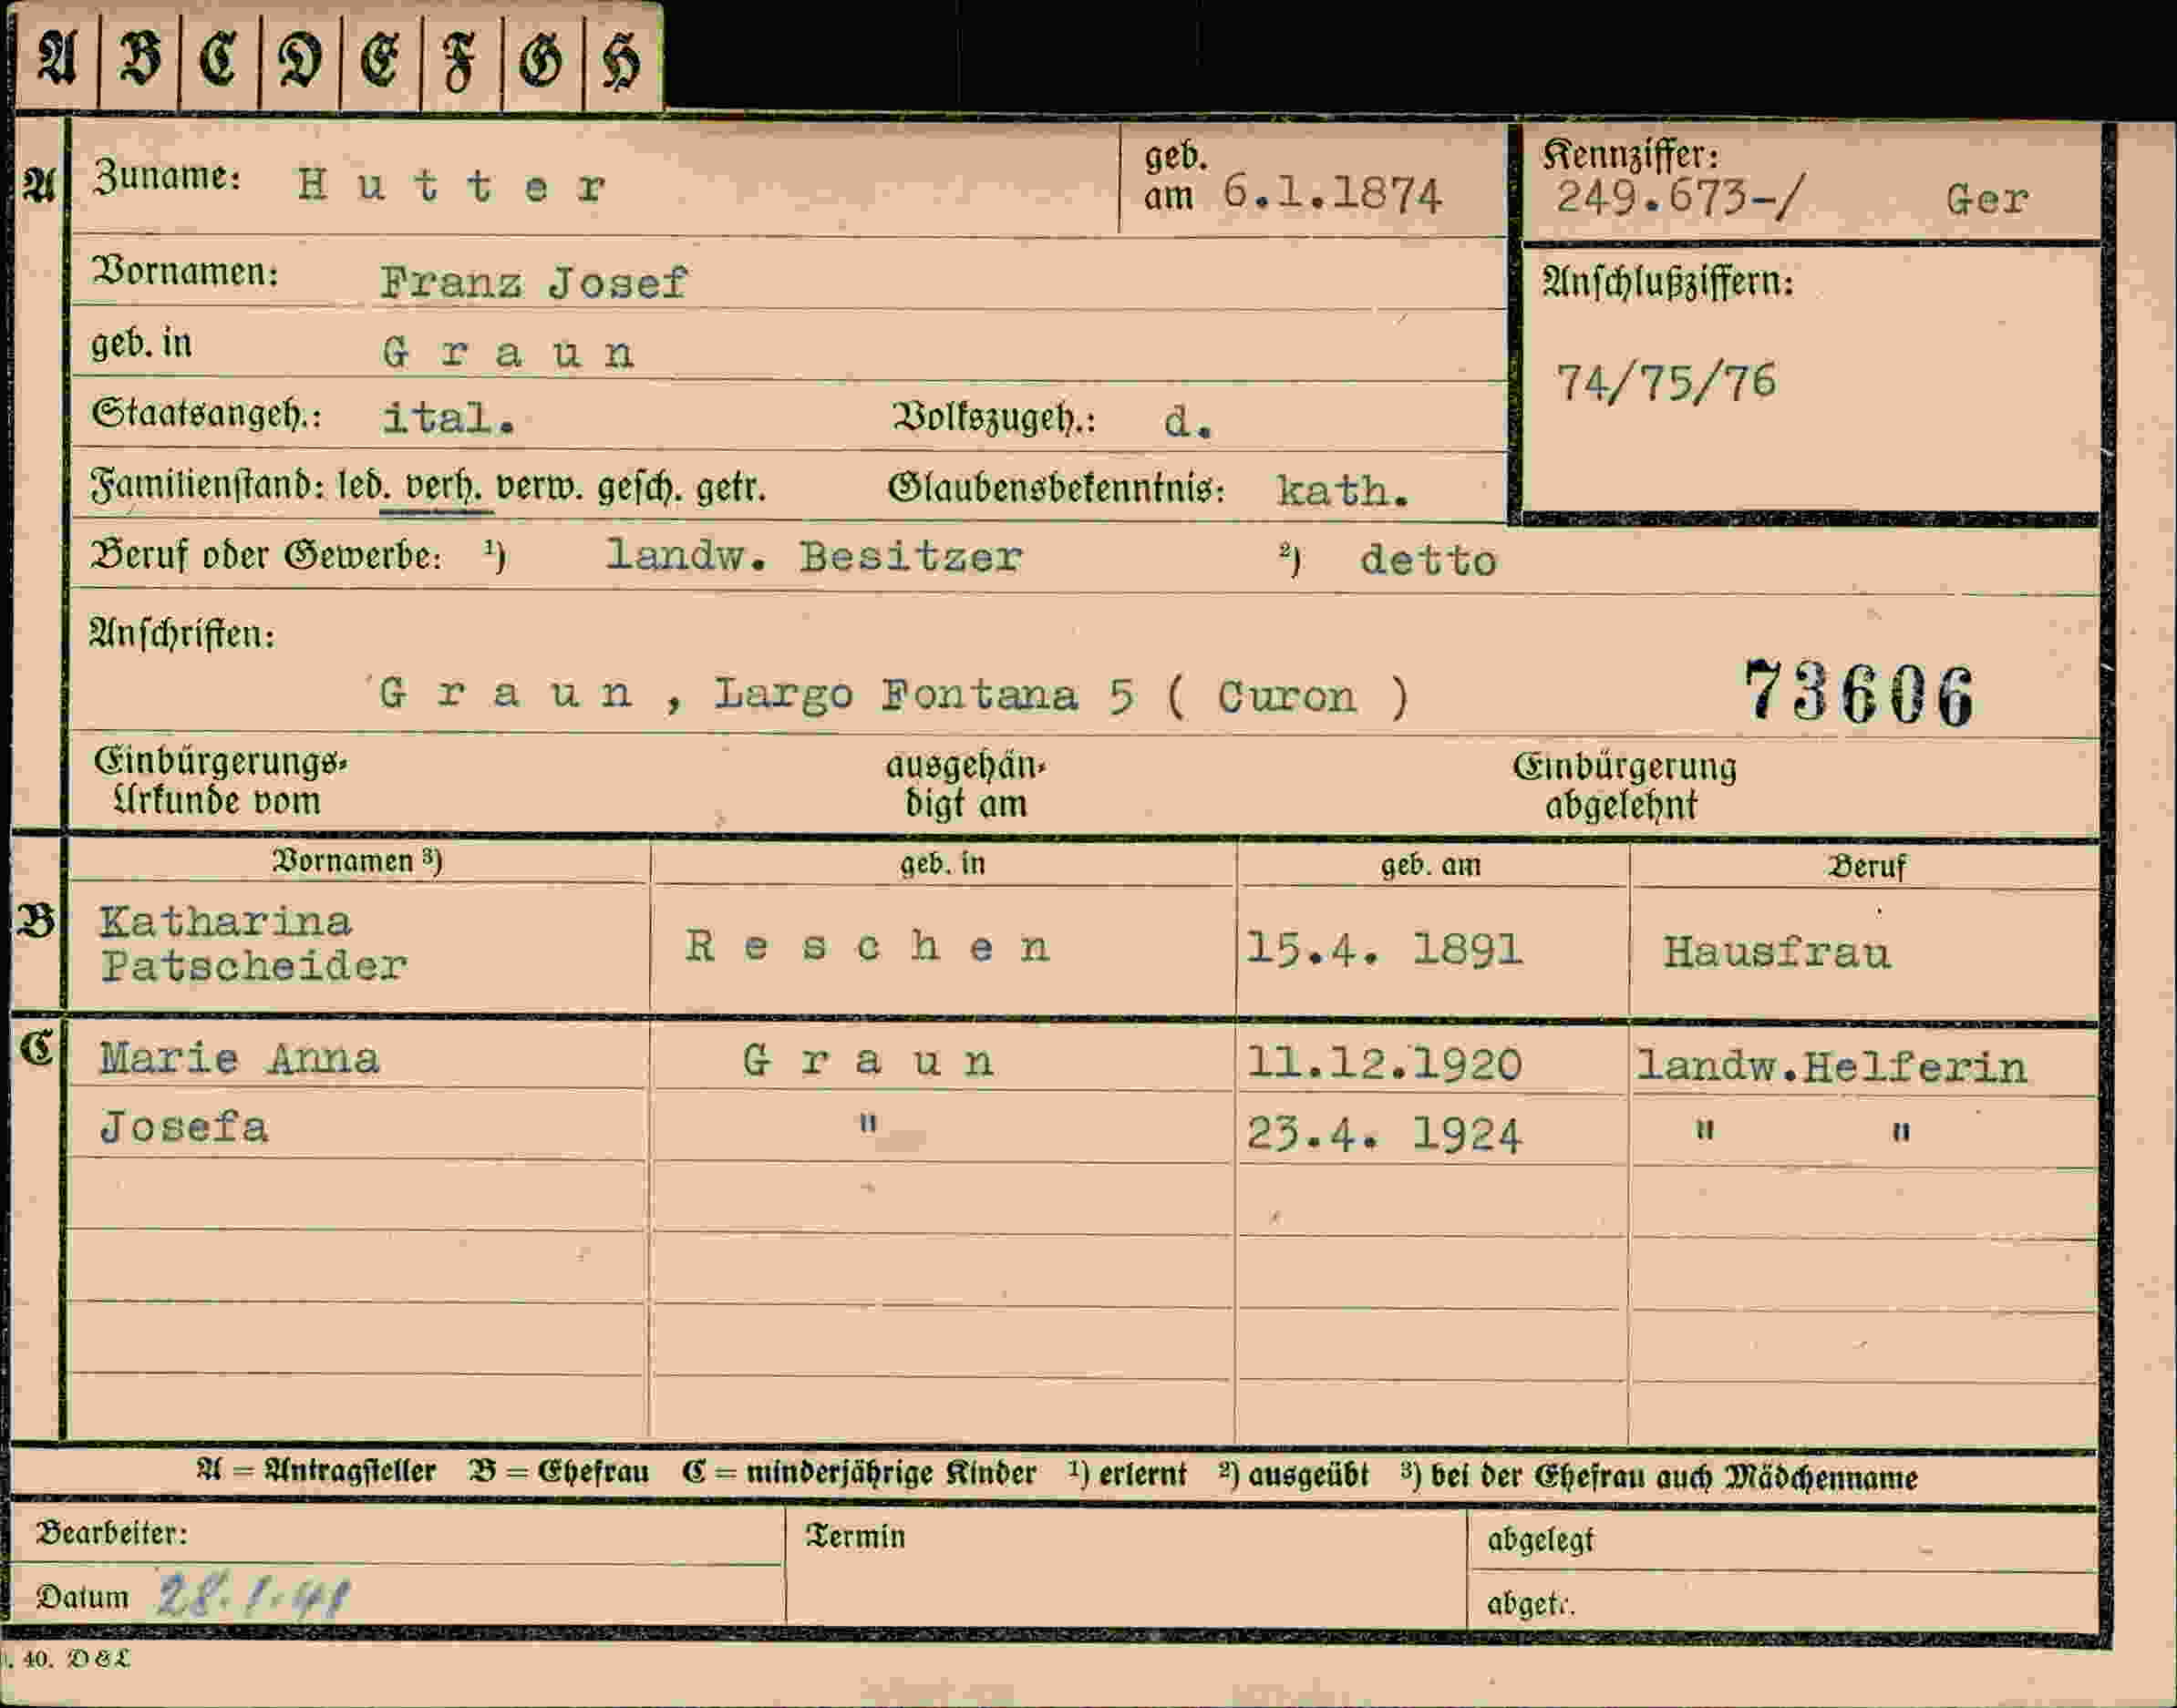 A B C D E F G H
A Zuname: Hutter geb. am 6.1.1874 Kennziffer: 249.673-/ Ger
Vornamen: Franz Josef Anschlußziffern:
geb. in Graun 74/75/76
Staatsangeh.: ital. Volkszugeh.: d.
Familienstand: led. verh. verw. gesch. getr. Glaubensbekenntnis: kath.
Beruf oder Gewerbe: ¹) landw. Besitzer ²) detto
Anschriften:
Graun, Largo Fontana 5 ( Curon ) 73606
Einbürgerungs- ausgehän- Einbürgerung
Urkunde vom digt am abgelehnt
Vornamen ³) geb. in geb. am Beruf
B Katharina
Patscheider Reschen 15.4. 1891 Hausfrau
C Marie Anna Graun 11.12.1920 landw.Helferin
Josefa " 23.4. 1924 " "
A = Antragsteller B = Ehefrau C = minderjährige Kinder ¹) erlernt ²) ausgeübt ³) bei der Ehefrau auch Mädchenname
Bearbeiter: Termin abgelegt
Datum 28.1.41 abgetr.
. 40. D & L